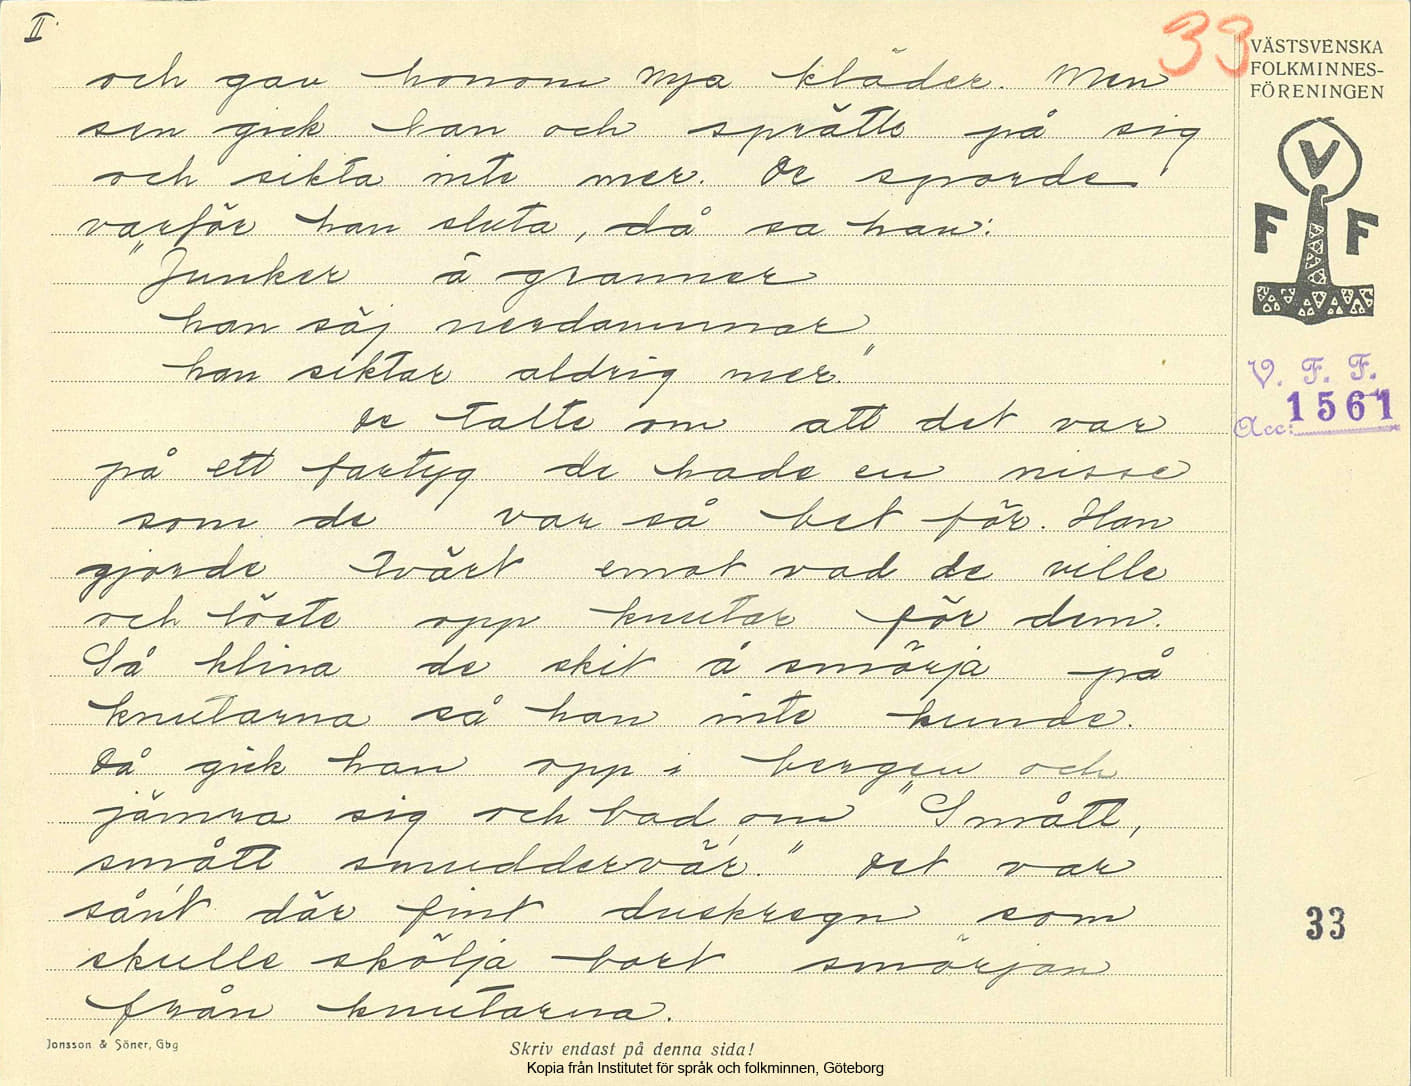 II.
33
VÄSTSVENSKA
FOLKMINNES-
FÖRENINGEN
och gav honom nya kläder. Men
sen gick han och sprätte på sig
och sikta inte mer. De sporde
varför han sluta, då sa han:
"Junker å granner
han säj nerdammar
han siktar aldrig mer."
De talte om att det var
på ett fartyg de hade en nisse
som de var så bet för. Han
gjorde tvärt emot vad de ville
och löste opp knutar för dem.
Så klina de skit å smörja på
knutarna så han inte kunde.
Då gick han opp i bergen och
jämra sig och bad om "Smått,
smått smuddervär." Det var
sånt där fint duskregn som
skulle skölja bort smörjan
från knutarna.
V
F F
V. F. F.
Acc: 1561
33
Jonsson & Söner, Gbg
Skriv endast på denna sida!
Kopia från Institutet för språk och folkminnen, Göteborg